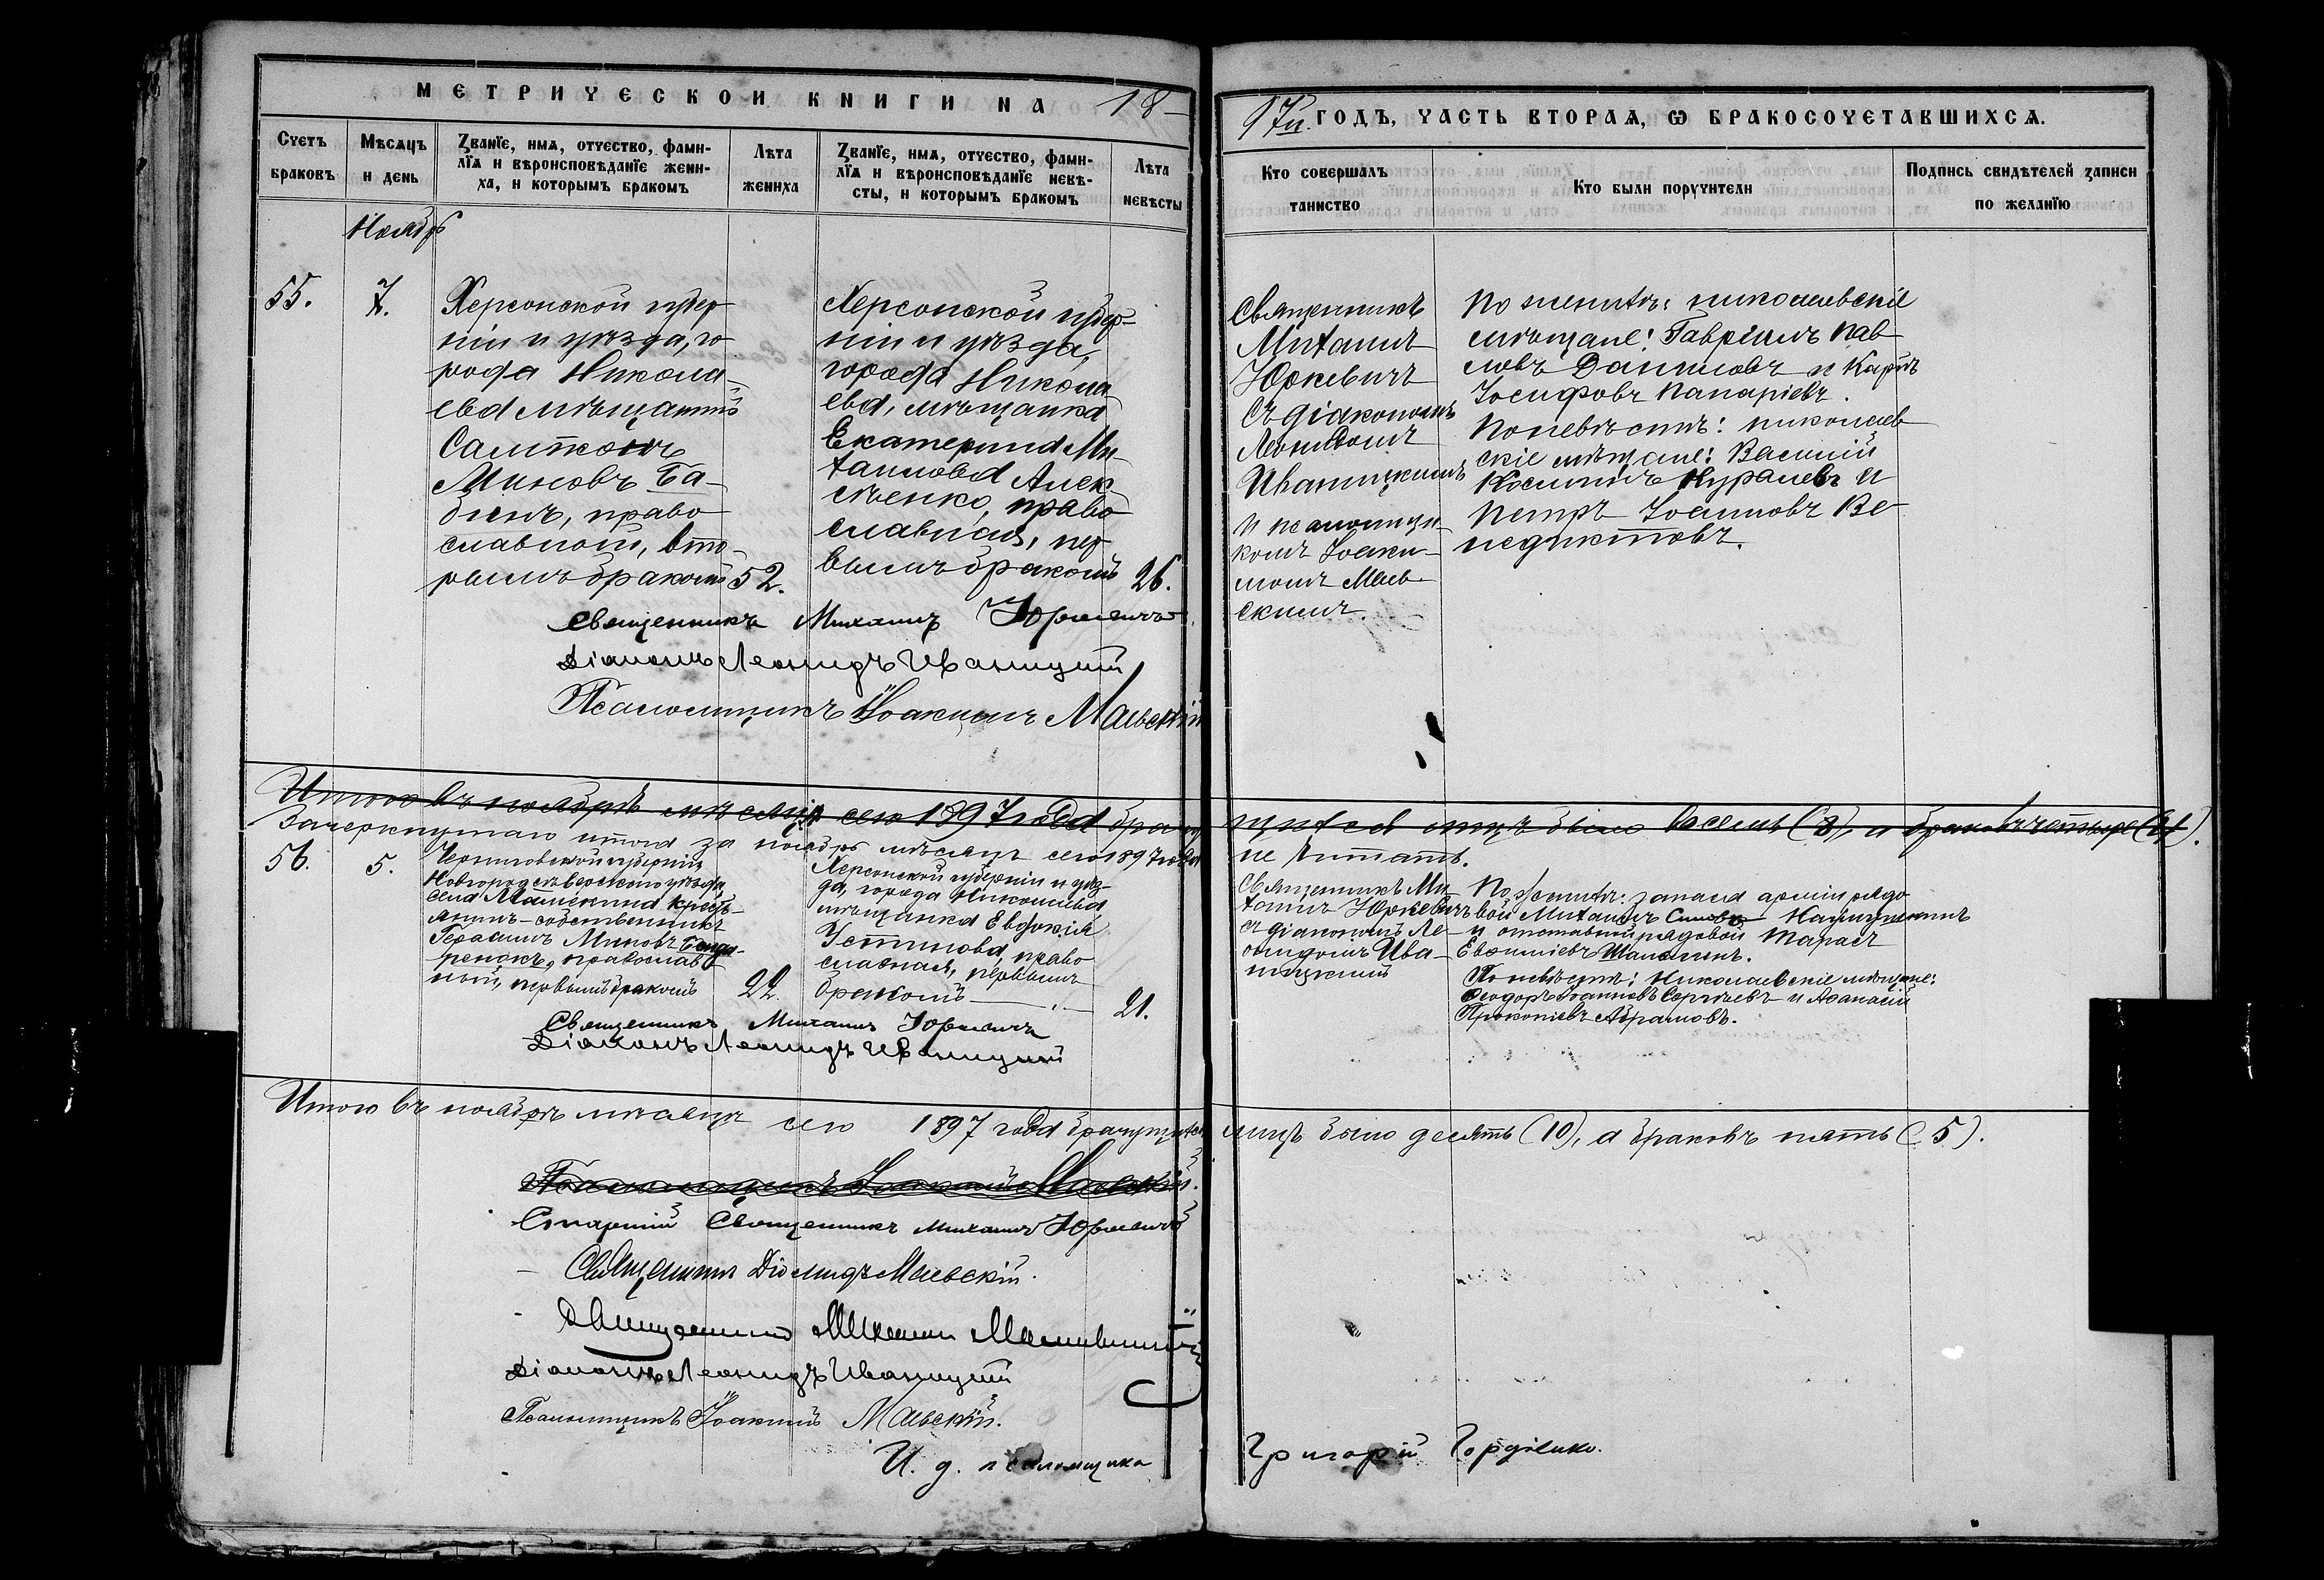 МЕТРИЧЕСКОЙ КНИГИ НА 18
97й. ГОДЪ, ЧАСТЬ ВТОРАЯ, Ѡ БРАКОСОЧЕТАВШИХСЯ.
Счетъ браковъ
Мѣсяцъ и день
Званїе, имя, отчество, фами-
лїя и вѣроисповѣданїе жени-
ха, и которымъ бракомъ
Лѣта жениха
Званїе, имя, отчество, фами-
лїя и вѣроисповѣданїе невѣ-
сты, и которымъ бракомъ
Лѣта невѣсты
Кто совершалъ таинство
Кто были поручители
Подпись свидѣтелей записи по желанїю
Ноябрь
55.
7.
Херсонской губер-
нiи и уѣзда, го-
рода Никола-
ева мѣщанинъ
Самсонъ
Миновъ Ба-
бичъ, право
славной, вто-
рымъ бракомъ
52.
Херсонской губер-
нiи и уѣзда,
города Никола-
ева, мѣщанка
Екатерина Ми-
хаилова Алек-
сѣенко, право
славная, пер
вымъ бракомъ
26.
Священникъ
Михаилъ
Юркевичъ
съ дiакономъ
Леонидомъ
Иваницкимъ
и псаломщи-
комъ Iоаки-
момъ Маев-
скимъ.
По женихѣ: николаевскiе
мѣщане: Гаврiилъ Пав-
ловъ Даниловъ и Карпъ
Iосифовъ Папарiевъ.
По невѣстѣ: николаев-
скiе мѣщане: Василiй
Косминъ Журавлевъ и
Петръ Iоанновъ Ве-
недиктовъ.
Священникъ Михаилъ Юркевичъ
Дiаконъ Леонидъ Иваницкiй
Псаломщикъ Iоакимъ Маевскiй
Итого въ ноябрѣ мѣсяцѣ сего 1897 года брачу
щихся лицъ было восемь (8), а браковъ четыре (4).
Зачеркнутаго итога за ноябрь мѣсяцъ сего 1897 года
не читать.
56.
5.
Черниговской губернiи
Новгородсѣверскаго уѣзда,
села Мамекина кресть-
янинъ-собственникъ
Герасимъ Миновъ
православ
ной, первымъ бракомъ
22.
Херсонской губернiи и уѣз-
да, города Николаева
мѣщанка Евдокiя
Устинова, право
славная, первымъ
бракомъ
21.
Священникъ Ми-
хаилъ Юркевичъ
съ дiакономъ Ле-
онидомъ Ива-
ницкимъ
По женихѣ: запаса армiи рядо
вой Михаилъ
и отставной рядовой Тарасъ
Евфимiевъ
По невѣстѣ: Николаевскiе мѣщане:
Ѳеодоръ Iоанновъ Сергѣевъ и Аѳанасiй
Прокопiевъ Абрамовъ.
Священникъ Михаилъ Юркевичъ
Дiаконъ Леонидъ Иваницкiй
Итого въ ноябрѣ мѣсяцѣ сего 1897 года брачущихся
лицъ было десять (10), а браковъ пять (5).
Псаломщикъ Iоакимъ Маевскiй.
Старшiй Священникъ Михаилъ Юркевичъ
Священникъ Дiомидъ Маевскiй.
Священникъ Михаилъ
Дiаконъ Леонидъ Иваницкiй
Псаломщикъ Iоакимъ Маевскiй.
И. д. псаломщика
Григорiй Гордiенко.